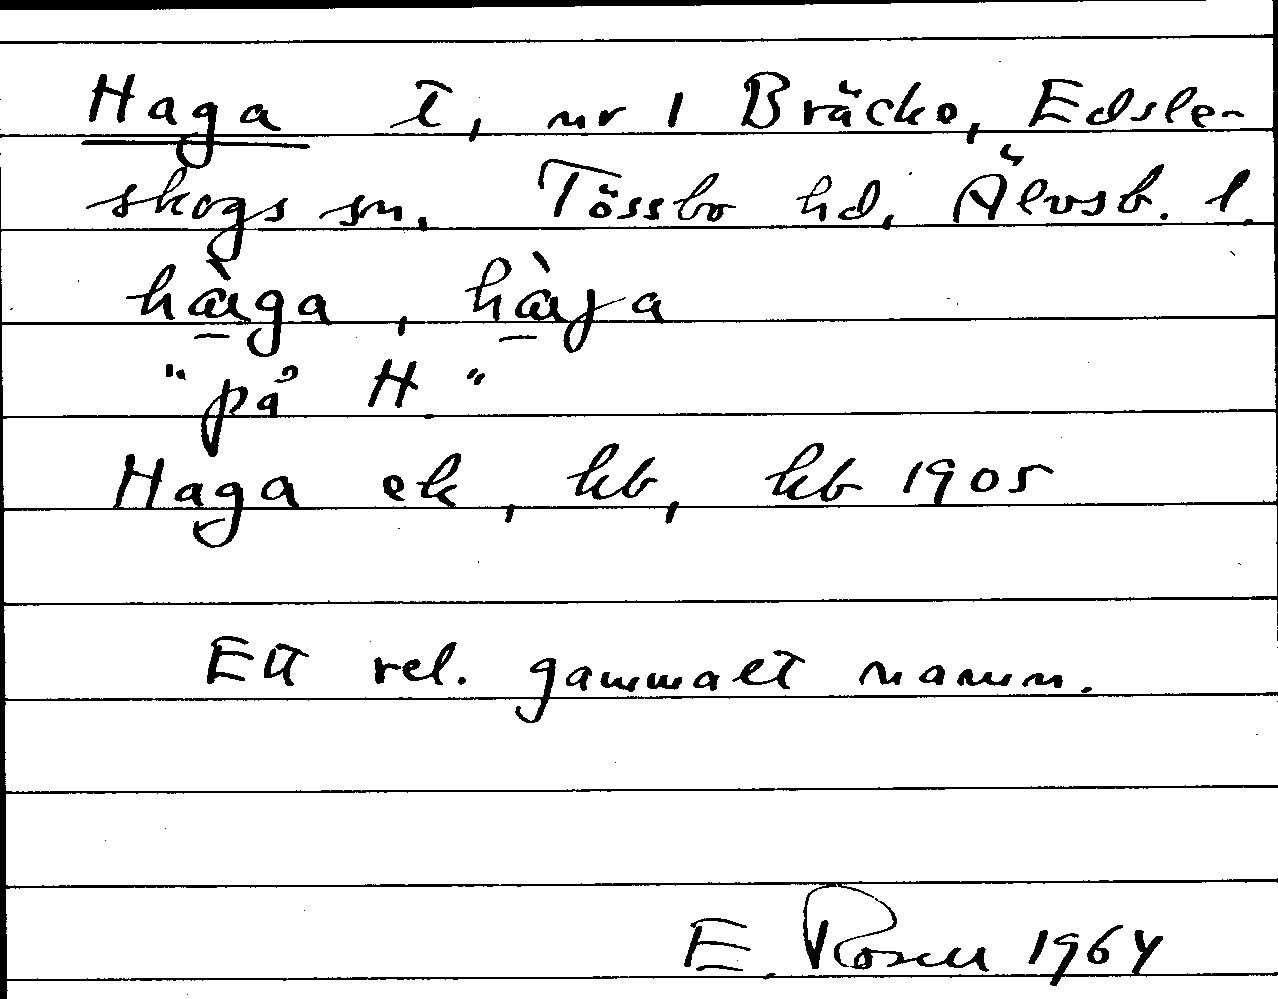 Haga t, nr 1 Bräcke, Edsle-
skogs sn. Tössbo hd, Älvsb. l.
hàga, hàɣa
"på H."
Haga ek, kb, kb 1905
Ett rel. gammalt namn.
E. Rosell 1964